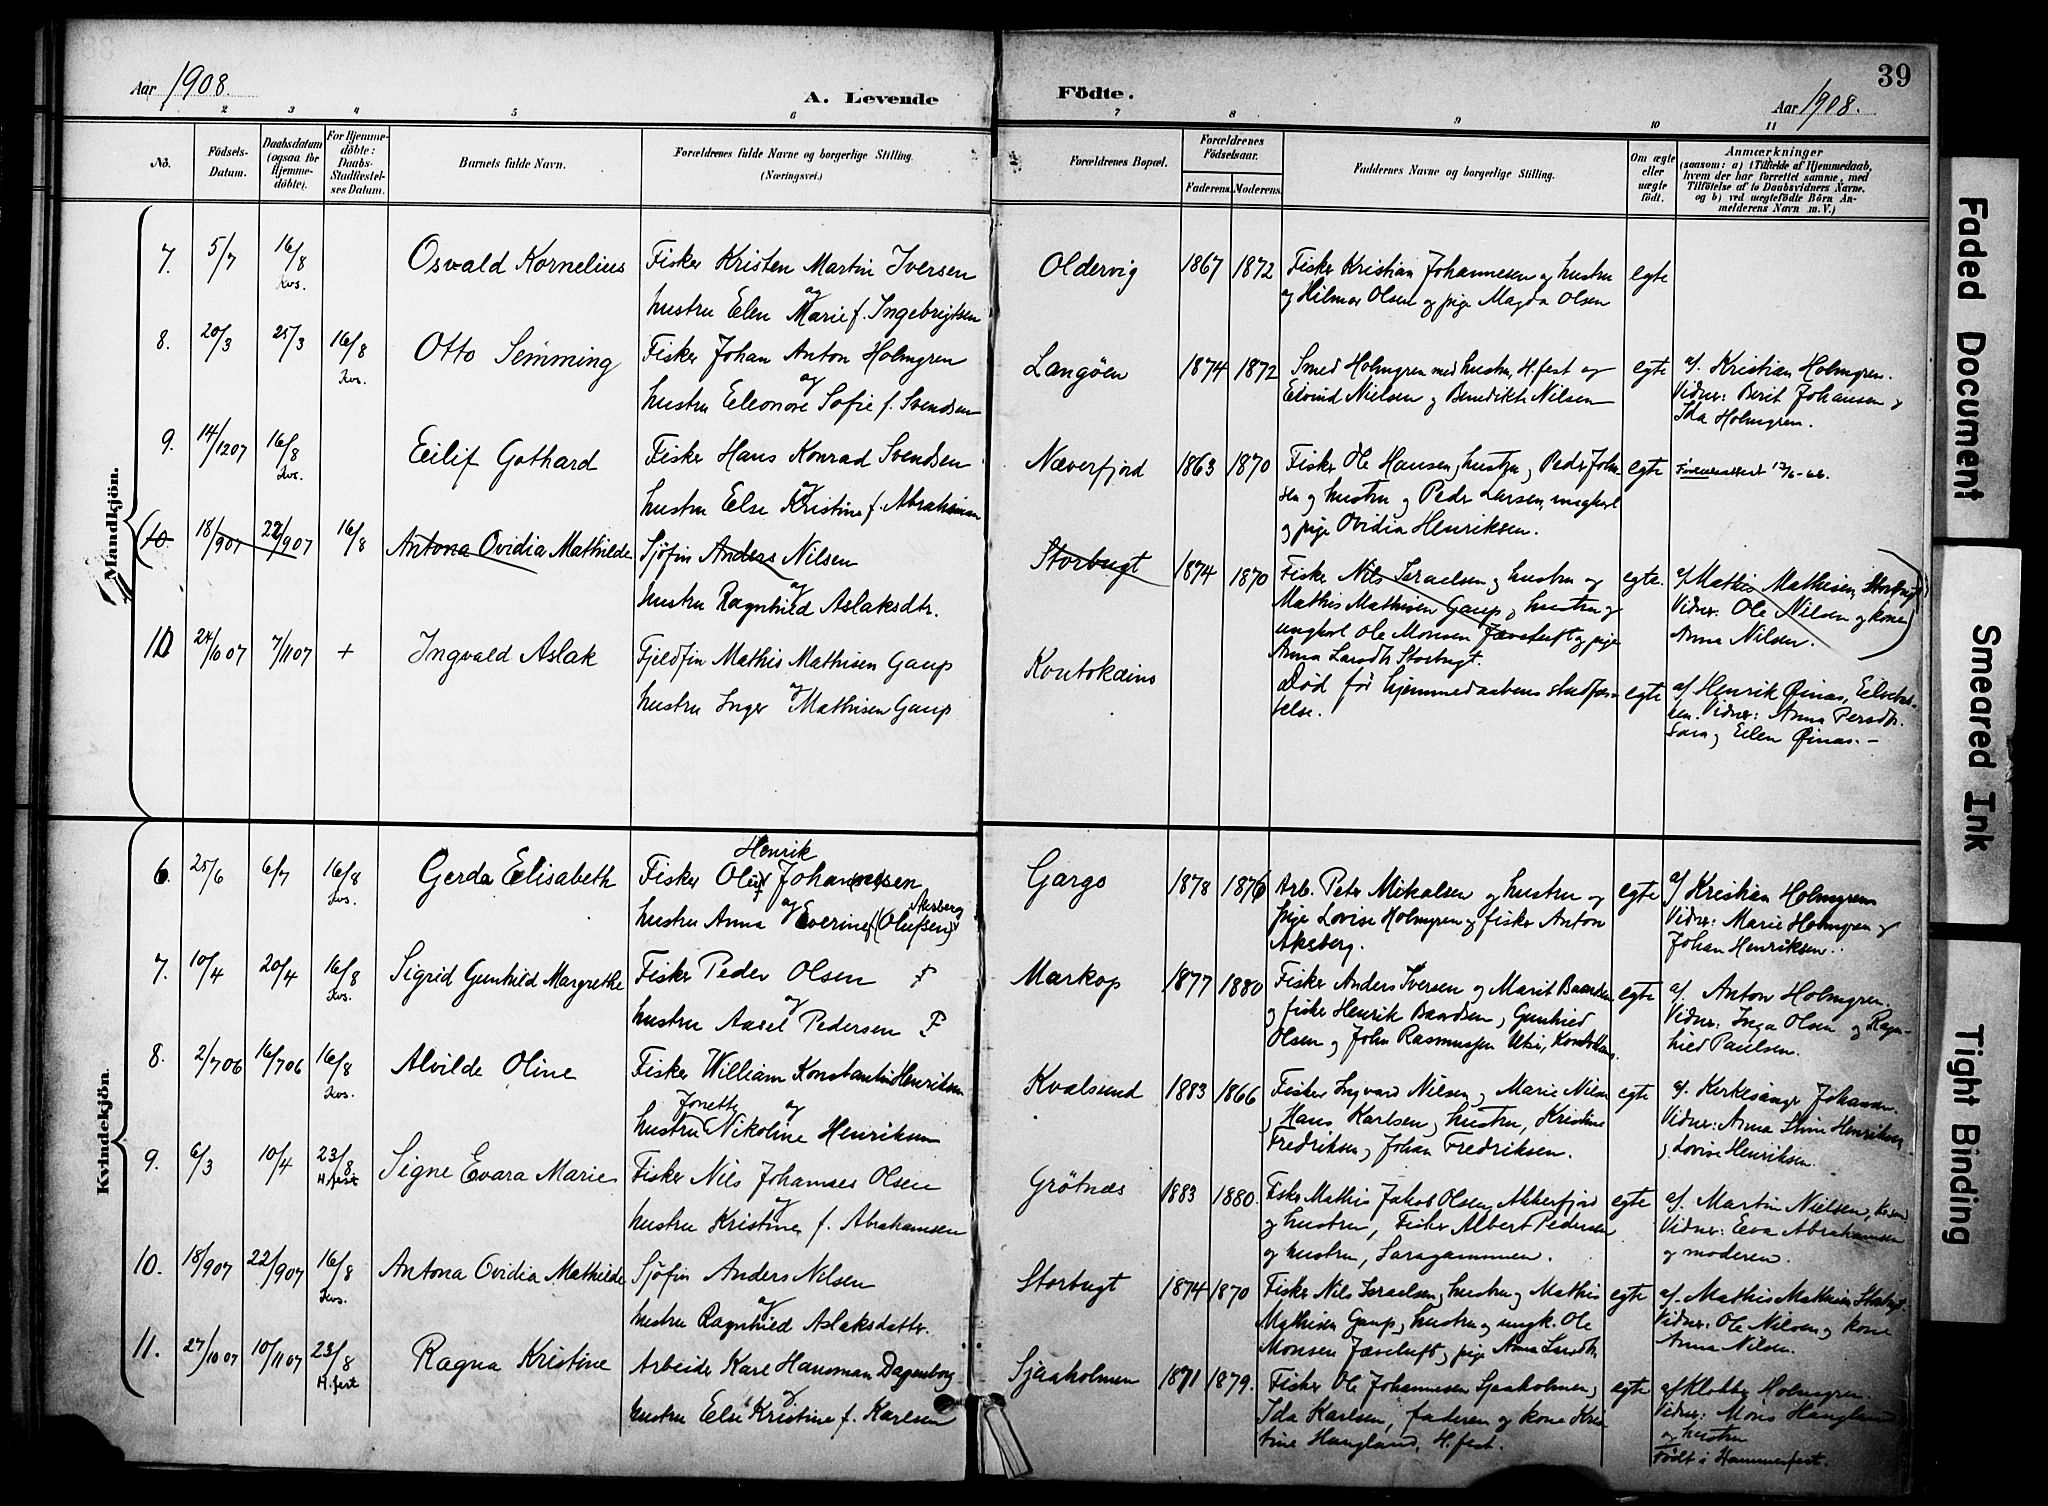 Aar 1908.
A. Levende
Födte.
Aar 1908.
39
1 2 3 4 5 6 7 8 9 10 11
No.
Födsels-
Datum.
Daabsdatum
(ogsaa for
Hjemme-
döbte).
For Hjemme-
döbte:
Daabs-
Stadfæstel-
ses Datum.
Barnets fulde Navn.
Forældrenes fulde Navne og borgerlige Stilling.
(Næringsvei.)
Forældrenes Bopæl.
Forældrenes
Födselsaar.
Faderens. Moderens.
Faddernes Navne og borgerlige Stilling.
Om ægte
eller
uægte
födt.
Anmærkninger
(saasom: a) i Tilfælde af Hjemmedaab,
hvem der har forrettet samme, med
Tilföielse af to Daabsvidners Navne.
og b) ved uægtefödte Börn An-
melderens Navn m. V.)
Mandkjön.
7. 5/7 16/8 Kvs. Osvald Kornelius Fisker Kristen Martin Iversen Oldervig 1867 1872 Fisker Kristian Johannesen og hustru egte
og
hustru Elen Marie f. Ingebrigtsen og Hilmar Olsen og pige Magda Olsen
8. 20/3 25/3 16/8 Kvs. Otto Semming Fisker Johan Anton Holmgren Langöen 1874 1872 Smed Holmgren med hustru, H.fest og egte af. Kristian Holmgren.
og
hustru Eleonore Sofie f. Svendsen Eivind Nielsen og Benedikte Nilsen Vidner: Berit Johansen og
Ida Holmgren.
9. 14/12 07 16/8 Kvs. Eilif Gothard Fisker Hans Konrad Svendsen Næverfjord 1863 1870 Fisker Ole Hansen, hustru, Peder Johan egte
og
hustru Else Kristine f. Abrahamsen sen og hustru og Peder Larsen, ungkarl
og pige Ovidia Henriksen.
(10. 18/9 07 22/9 07 16/8 Antona Ovidia Mathilde Sjöfin Anders Nilsen Storbugt 1874 1870 Fisker Nils Israelsen og hustru og egte. af Mathis Mathisen, Storbugt
og
hustru Ragnhild Aslaksdtr. Mathis Mathisen Gaup, hustru og Vidner: Ole Nilsen og kone
ungkarl Ole Monsen Jæveluft og pige Anna Nilsen.)
Anna Larsdtr Storbugt.
10. 24/10 07 7/11 07 + Ingvald Aslak Fjeldfin Mathis Mathisen Gaup Koutokæino Död för hjemmedaabens stadfæs- egte af Henrik
og
hustru Inger Mathisen Gaup telse. Vidner: Anna Persdtr.
Kvindekjön.
6. 25/6 6/7 16/8 Kvs. Gerda Elisabeth Fisker Oluf Henrik Johannesen Gargo 1878 1876 Arb. Peter Mikalsen og hustru og egte af Kristian Holmgren
og
hustru Anna Everine f. (Olufsen) Aksberg pige Lovise Holmgren og fisker Anton Vidner: Marie Holmgren og
Aksberg. Johan Henriksen.
7. 10/4 20/4 16/8 Kvs. Sigrid Gunhild Margrethe Fisker Peder Olsen F Markop 1877 1880 Fisker Anders Iversen og Marit Baardsen egte af. Anton Holmgren.
og
hustru Aasel Pedersen F og fisker Henrik Baardsen, Gunhild Vidner: Inga Olsen og Ragn-
Olsen og John Rasmussen hild Paulsen.
8. 2/7 06 16/7 06 16/8 Kvs. Alvilde Oline Fisker William Konstantin Henriksen Kvalsund 1883 1866 Fisker Ingvard Nilsen, Marie Nilsen egte af. Kirkesanger Johansen
Jonette og
hustru Nikoline Henriksen , Hans Karlsen, hustru, Kristine Vidner: Anna Stine Henriksen
Fredriksen, Johan Fredriksen. , Lovise Henriksen.
9. 6/3 10/4 23/8 H.fest Signe Evara Marie Fisker Nils Johannes Olsen Grötnæs 1883 1880. Fisker Mathis Jakob Olsen, Akkerfjord egte af. Martin Nielsen,
og
hustru Kristine f. Abrahamsen og hustru, Fisker Albert Pedersen Vidner: Eva Abrahamsen
og hustru, Saragammen. og moderen.
10. 18/9 07 22/9 07 16/8 Kvs. Antona Ovidia Mathilde Sjöfin Anders Nilsen Storbugt 1874 1870 Fisker Nils Israelsen, hustru og Mathis egte af. Mathis Mathisen Storbugt.
og
hustru Ragnhild Aslaksdattr. Mathisen Gaup, hustru og ungk. Ole Vidner: Ole Nilsen og kone
Monsen Jæveluft, pige Anna Larsdtr. Anna Nilsen.
11. 27/10 07 10/11 07 23/8 H.fest Ragna Kristine Arbeider Karl Hansman Dagenborg Sjaaholmen 1871 1879. Fisker Ole Johannesen Sjaaholmen, egte af Klokker Holmgren.
og
hustru Else Kristine f. Karlsen Ida Karlsen, faderen og kone Kris Vidner: Mons Haugland
tine Haugland, H.fest. og hustru
Født i Hammerfest.
Faded Document
Smeared Ink
Tight Binding